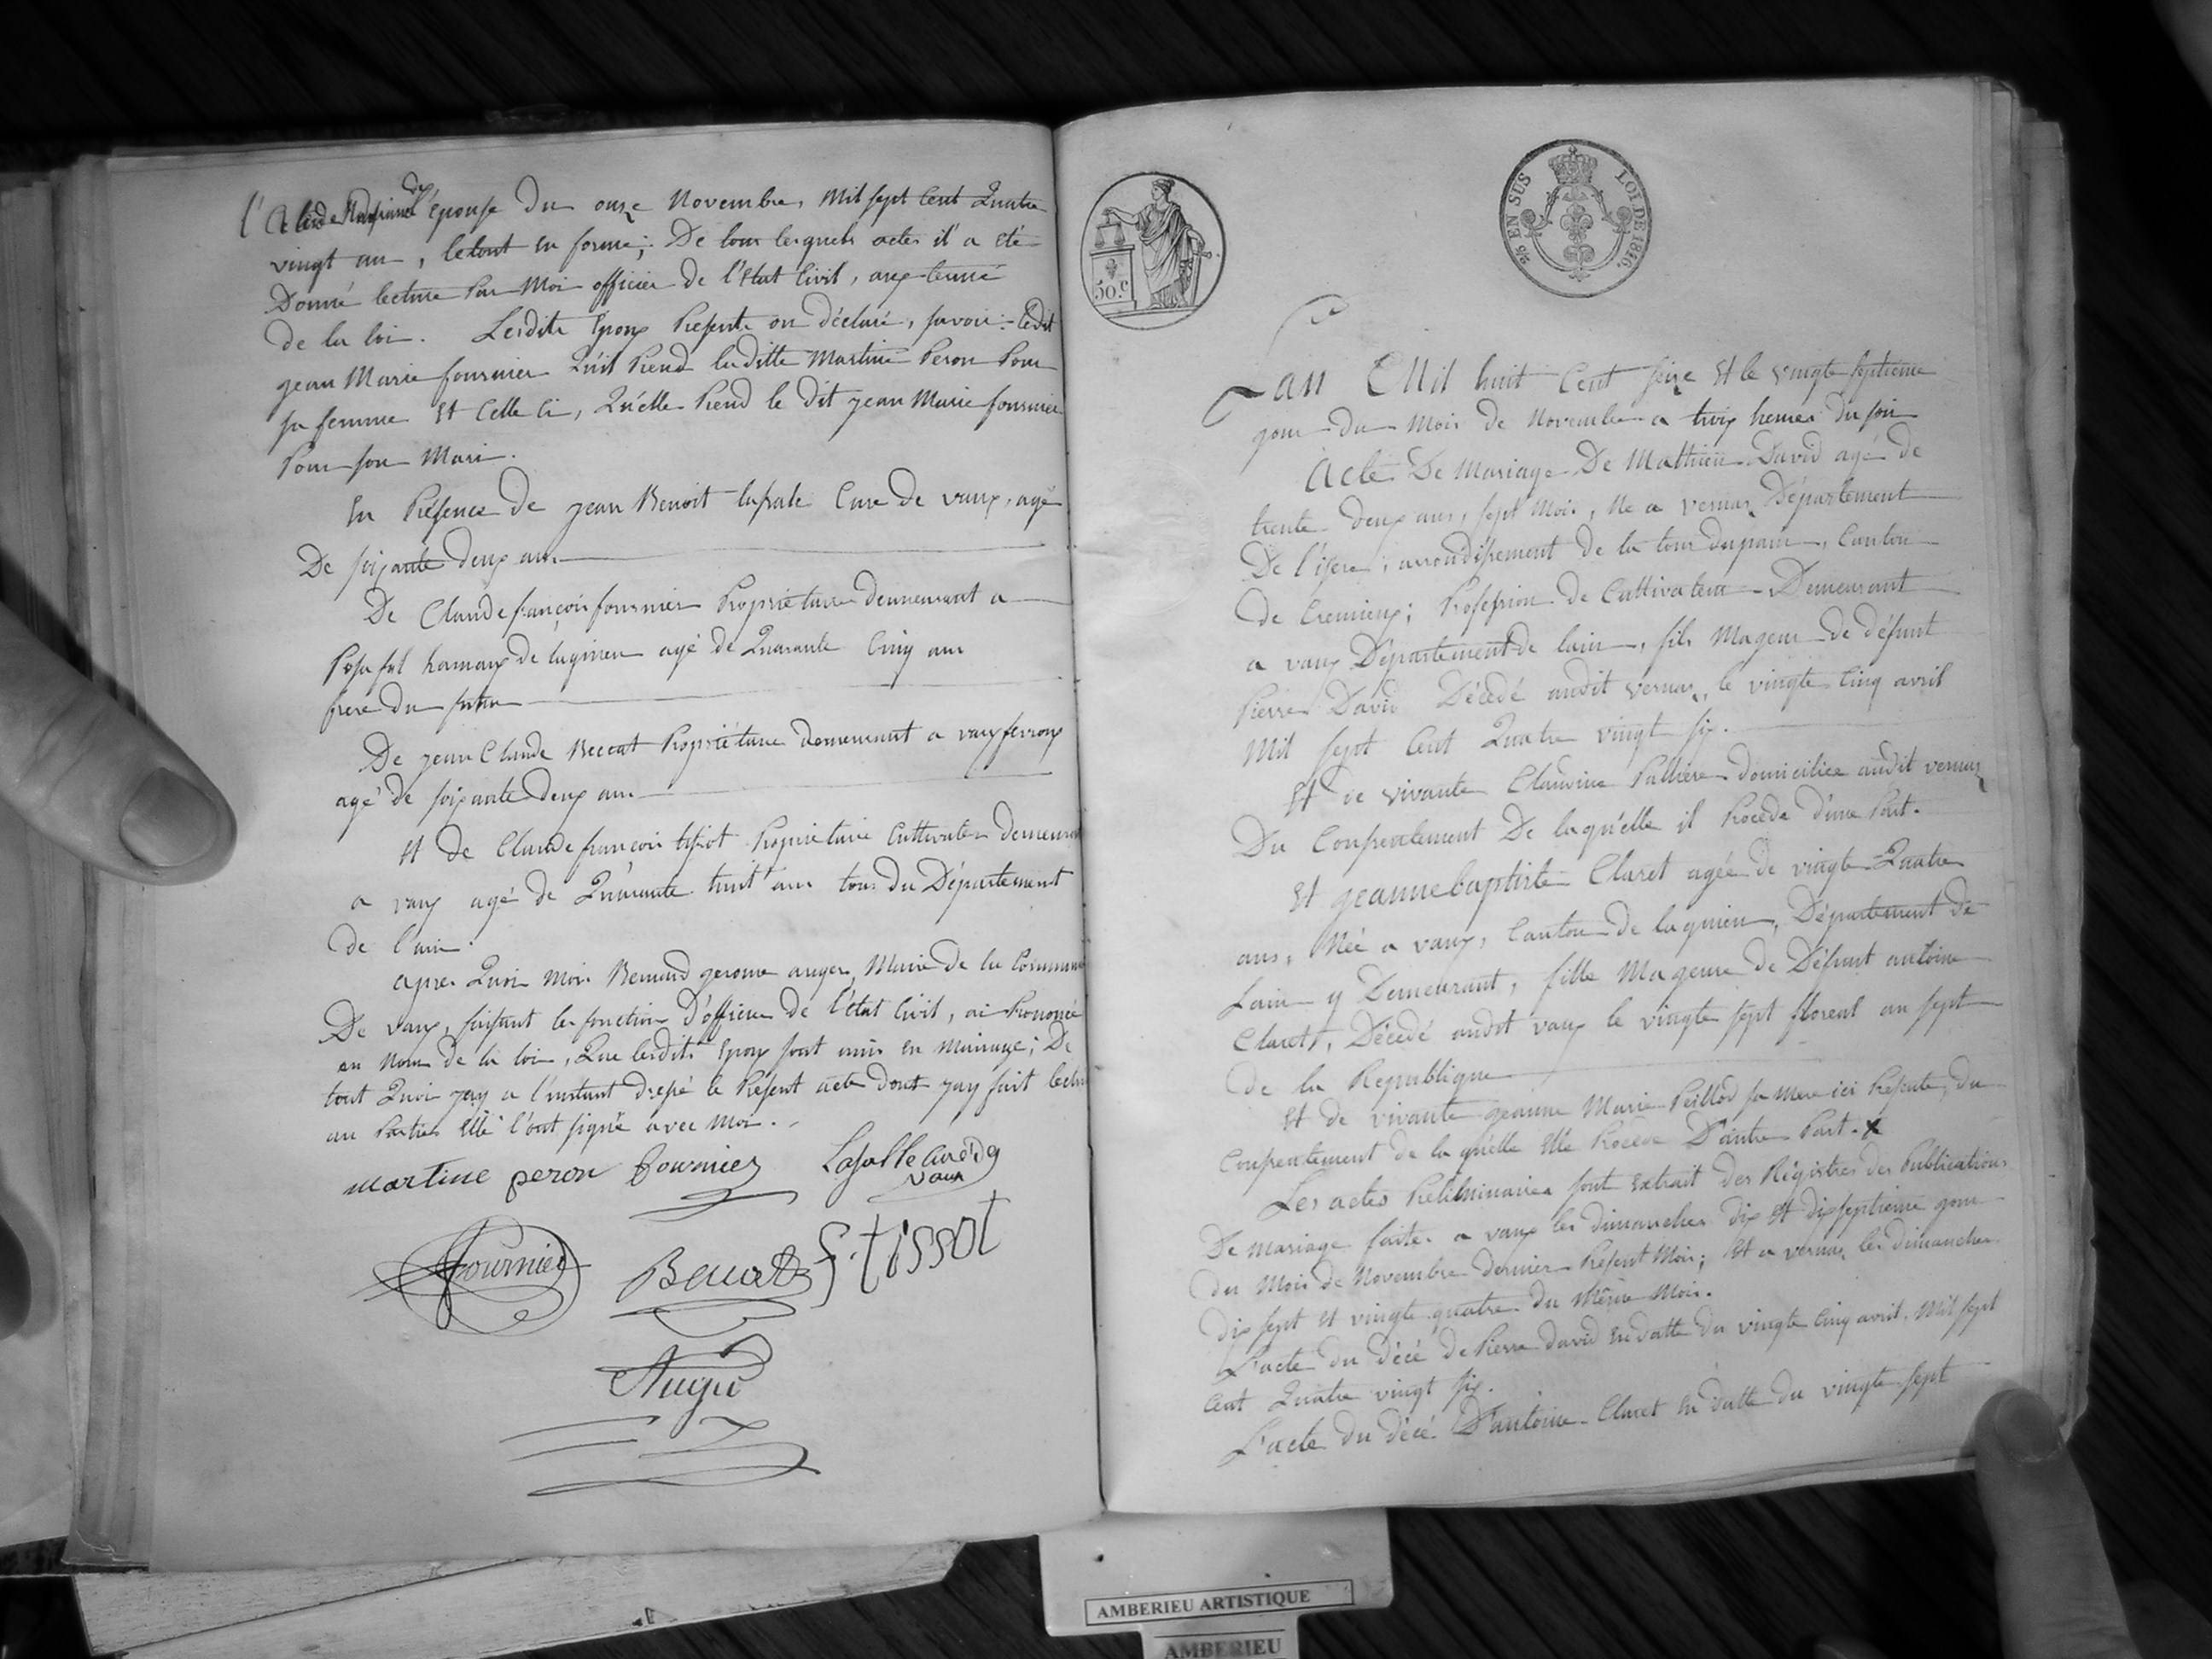 l'acte de Naissance de l'Epouse du onze Novembre, Mil sept Cent Quatre
vingt un, le tout en forme; De tous lesquels actes il a eté
Donné lecture Par Moi officier de l'Etat Civil, aux termé
de la loi. Lesdits Epoux Présents on déclaré, savoir: ledit
jean Marie fournier Qu'il Prend laditte Martine Peron Pour
sa femme Et Celle Ci, Qu'elle Prend le dit jean Marie fournier
Pour son Mari.
En Présence de jean Benoit lasale Cure de vaux, agé
De soixante deux ans
De Claude françois fournier Propriétaire demeurant a
hamaux de lagnieu agé de Quarante Cinq ans
frere du futur
De jean Claude Beccat Propriétaire demeurant a vaux fevroux
agé de soixante deux ans
Et de Claude françois tissot Propriétaire Cultivateur demeurant
a vaux agé de Quarante huit ans tous du Département
de l'ain.
apres Quoi Moi Bernard gerome auger, Maire de la Commune
De vaux, faisant les fonction D'officier de l'état Civil, ai Prononcé
au Nom de la loi, Que lesdits Epoux sont unis en Mariage; De
tout Quoi jay a l'instant dressé le Présent acte dont jay fait lecture
au Parties Elle l'ont signé avec Moi.
martine peron fournier Lasalle Curé de
vaux
fournier Beccat f. tissot
Auger
50 c.
2/10 EN SUS LOI DE 1816.
Lan Mil huit Cent seize Et le vingte septieme
jour du Mois de Novembre a troix heures du soir
Acte De Mariage De Mathieu David agé de
trente deux ans, sept Mois, Né a vernas Département
De l'isere, arrondissement de la tour dupain, Canton
de Cremieux; Profession de Cultivateur Demeurant
a vaux Département de lain, fils Mageur de défunt
Pierre David Décédé audit vernas, le vingte Cinq avril
Mil sept Cent Quatre vingt six.
Et de vivante Claudine domiciliée audit vernas
Du Consentement De laqu'elle il Procede d'une Part.
Et jeanne baptiste Claret agée de vingte Quatre
ans, Née a vaux, Canton de lagnieu, Département de
Lain y Demeurant, fille Mageure de Défunt antoine
Claret, Décedé audit vaux le vingte sept floreal an sept
de la Republique
Et de vivante jeanne Marie Peillod sa Mere ici Présente, du
Consentement de la qu'elle Elle Procede D'autre Part. x
Les actes Préliminaires sont Extrait des Régistres des Publications
De Mariage faites a vaux les dimanches dix Et dix septieme jour
du Mois de Novembre dernier Présent Mois; Et a vernas les dimanches
dix sept Et vingte quatre du Même Mois.
L'acte du décé de Pierre david En datte du vingte Cinq avril Mil sept
Cent Quatre vingt six.
L'acte du décé D'antoine Claret En datte du vingte sept
AMBERIEU ARTISTIQUE
AMBERIEU